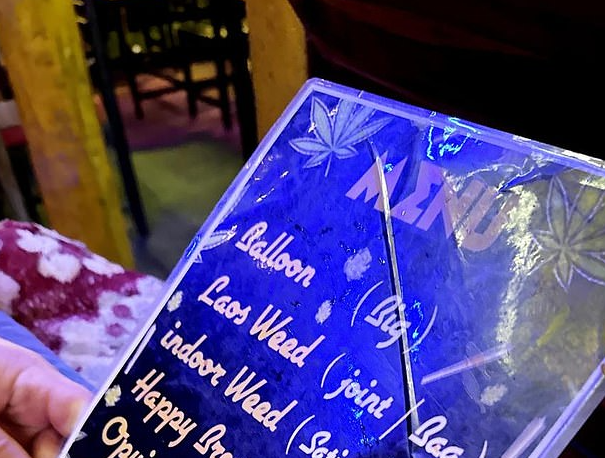 MENU
Balloon (Big)
Laos Weed (joint / Bag)
indoor Weed (Sati
Happy Bro
Opi